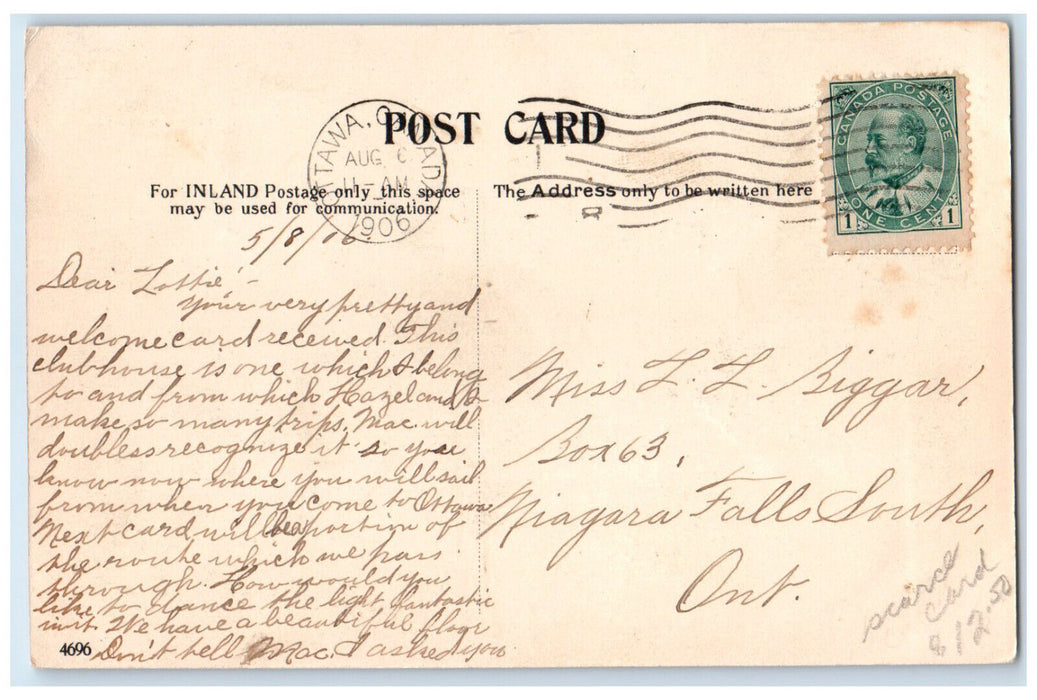 POST CARD
OTTAWA, CANADA
AUG 6
11-AM
1906
CANADA POSTAGE
1 ONE CENT 1
For INLAND Postage only this space
may be used for communication.
The Address only to be written here
5/8/06
Dear Lottie,-
Your very pretty and
welcome card received. This
clubhouse is one which I belong
to and from which Hazel and I
make so many trips. Mac. will
doubtless recognize it so you
know now where you will sail
from when you come to Ottawa
Next card will be a portion of
the route which we pass
through. How would you
like to dance the light fantastic
in it. We have a beautiful floor
Don't tell Mac. I asked you
4696
Miss L. L. Biggar,
Box 63,
Niagara Falls South,
Ont.
scarce
card
$12.50